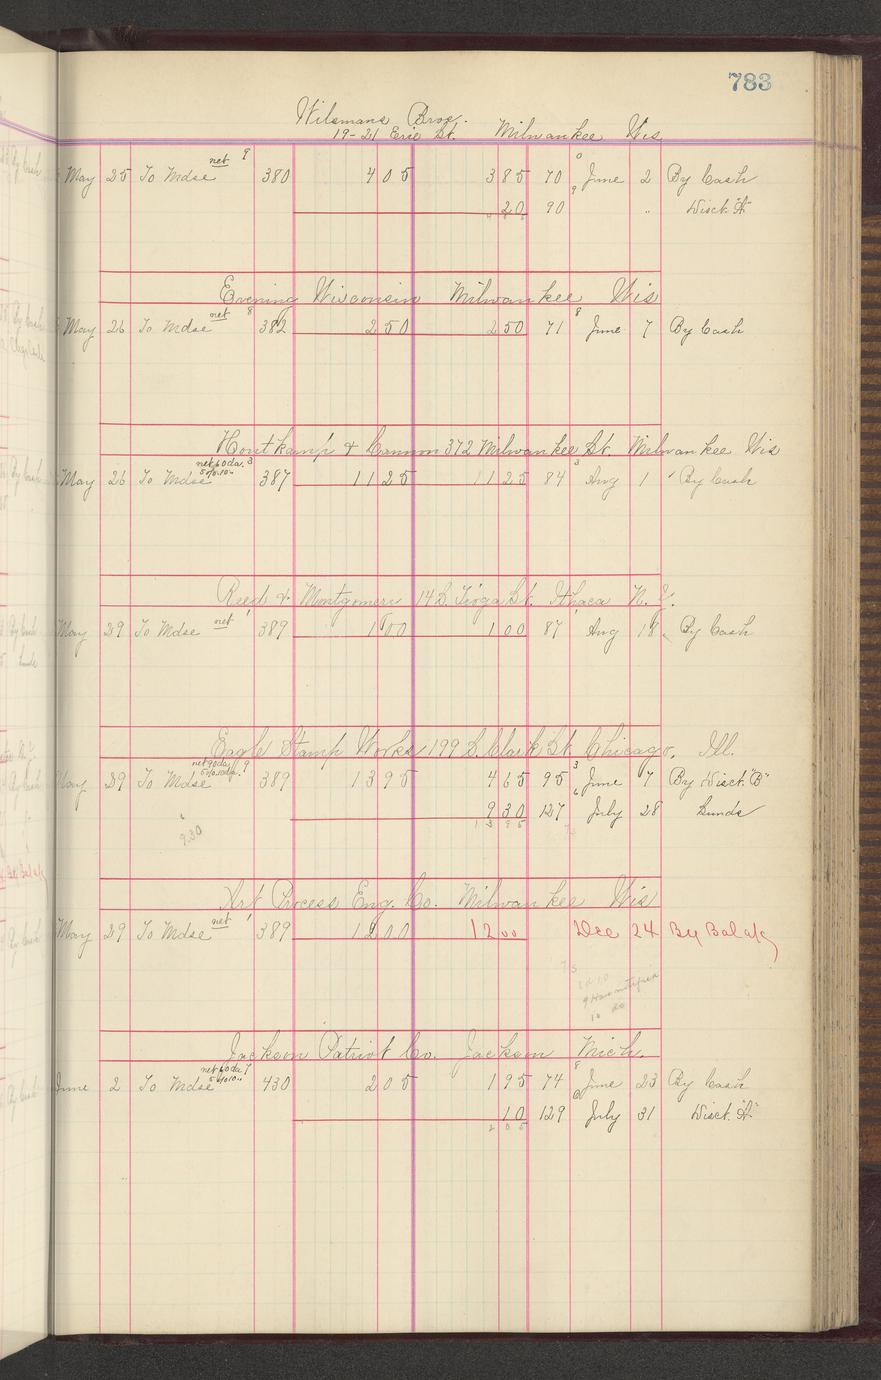 783
Wilsmans Bros.
19-21 Erie St. Milwaukee Wis
May 25 To Mdse net 9 380 405 385 70 June 2 By Cash
20 90 " Disct. "A"
Evening Wisconsin Milwaukee Wis
May 26 To Mdse net 8 382 250 250 71 8 June 7 By Cash
Houtkamp & Cannon 372 Milwaukee St. Milwaukee Wis
May 26 To Mdse net 60 da. 5%10 " 3 387 1125 1125 84 3 Aug 1 By Cash
Reed & Montgomery 14 S. Tioga St. Ithaca N. Y.
May 29 To Mdse net 1 389 100 100 87 1 Aug 18 By Cash
Eagle Stamp Works 199 S. Clark St. Chicago, Ill.
May 29 To Mdse net 90 da. 5%10 da. 9 389 1395 465 95 3 June 7 By Disct. "B"
930 127 6 July 28 Sunds
1395
930
Art Process Eng. Co. Milwaukee Wis
May 29 To Mdse net 1 389 1200 1200 Dec 24 By Bal
Jackson Patriot Co. Jackson Mich.
June 2 To Mdse net 60 da 5%10 " 7 430 205 195 74 8 June 23 By Cash
10 129 July 31 Disct. "A"
205